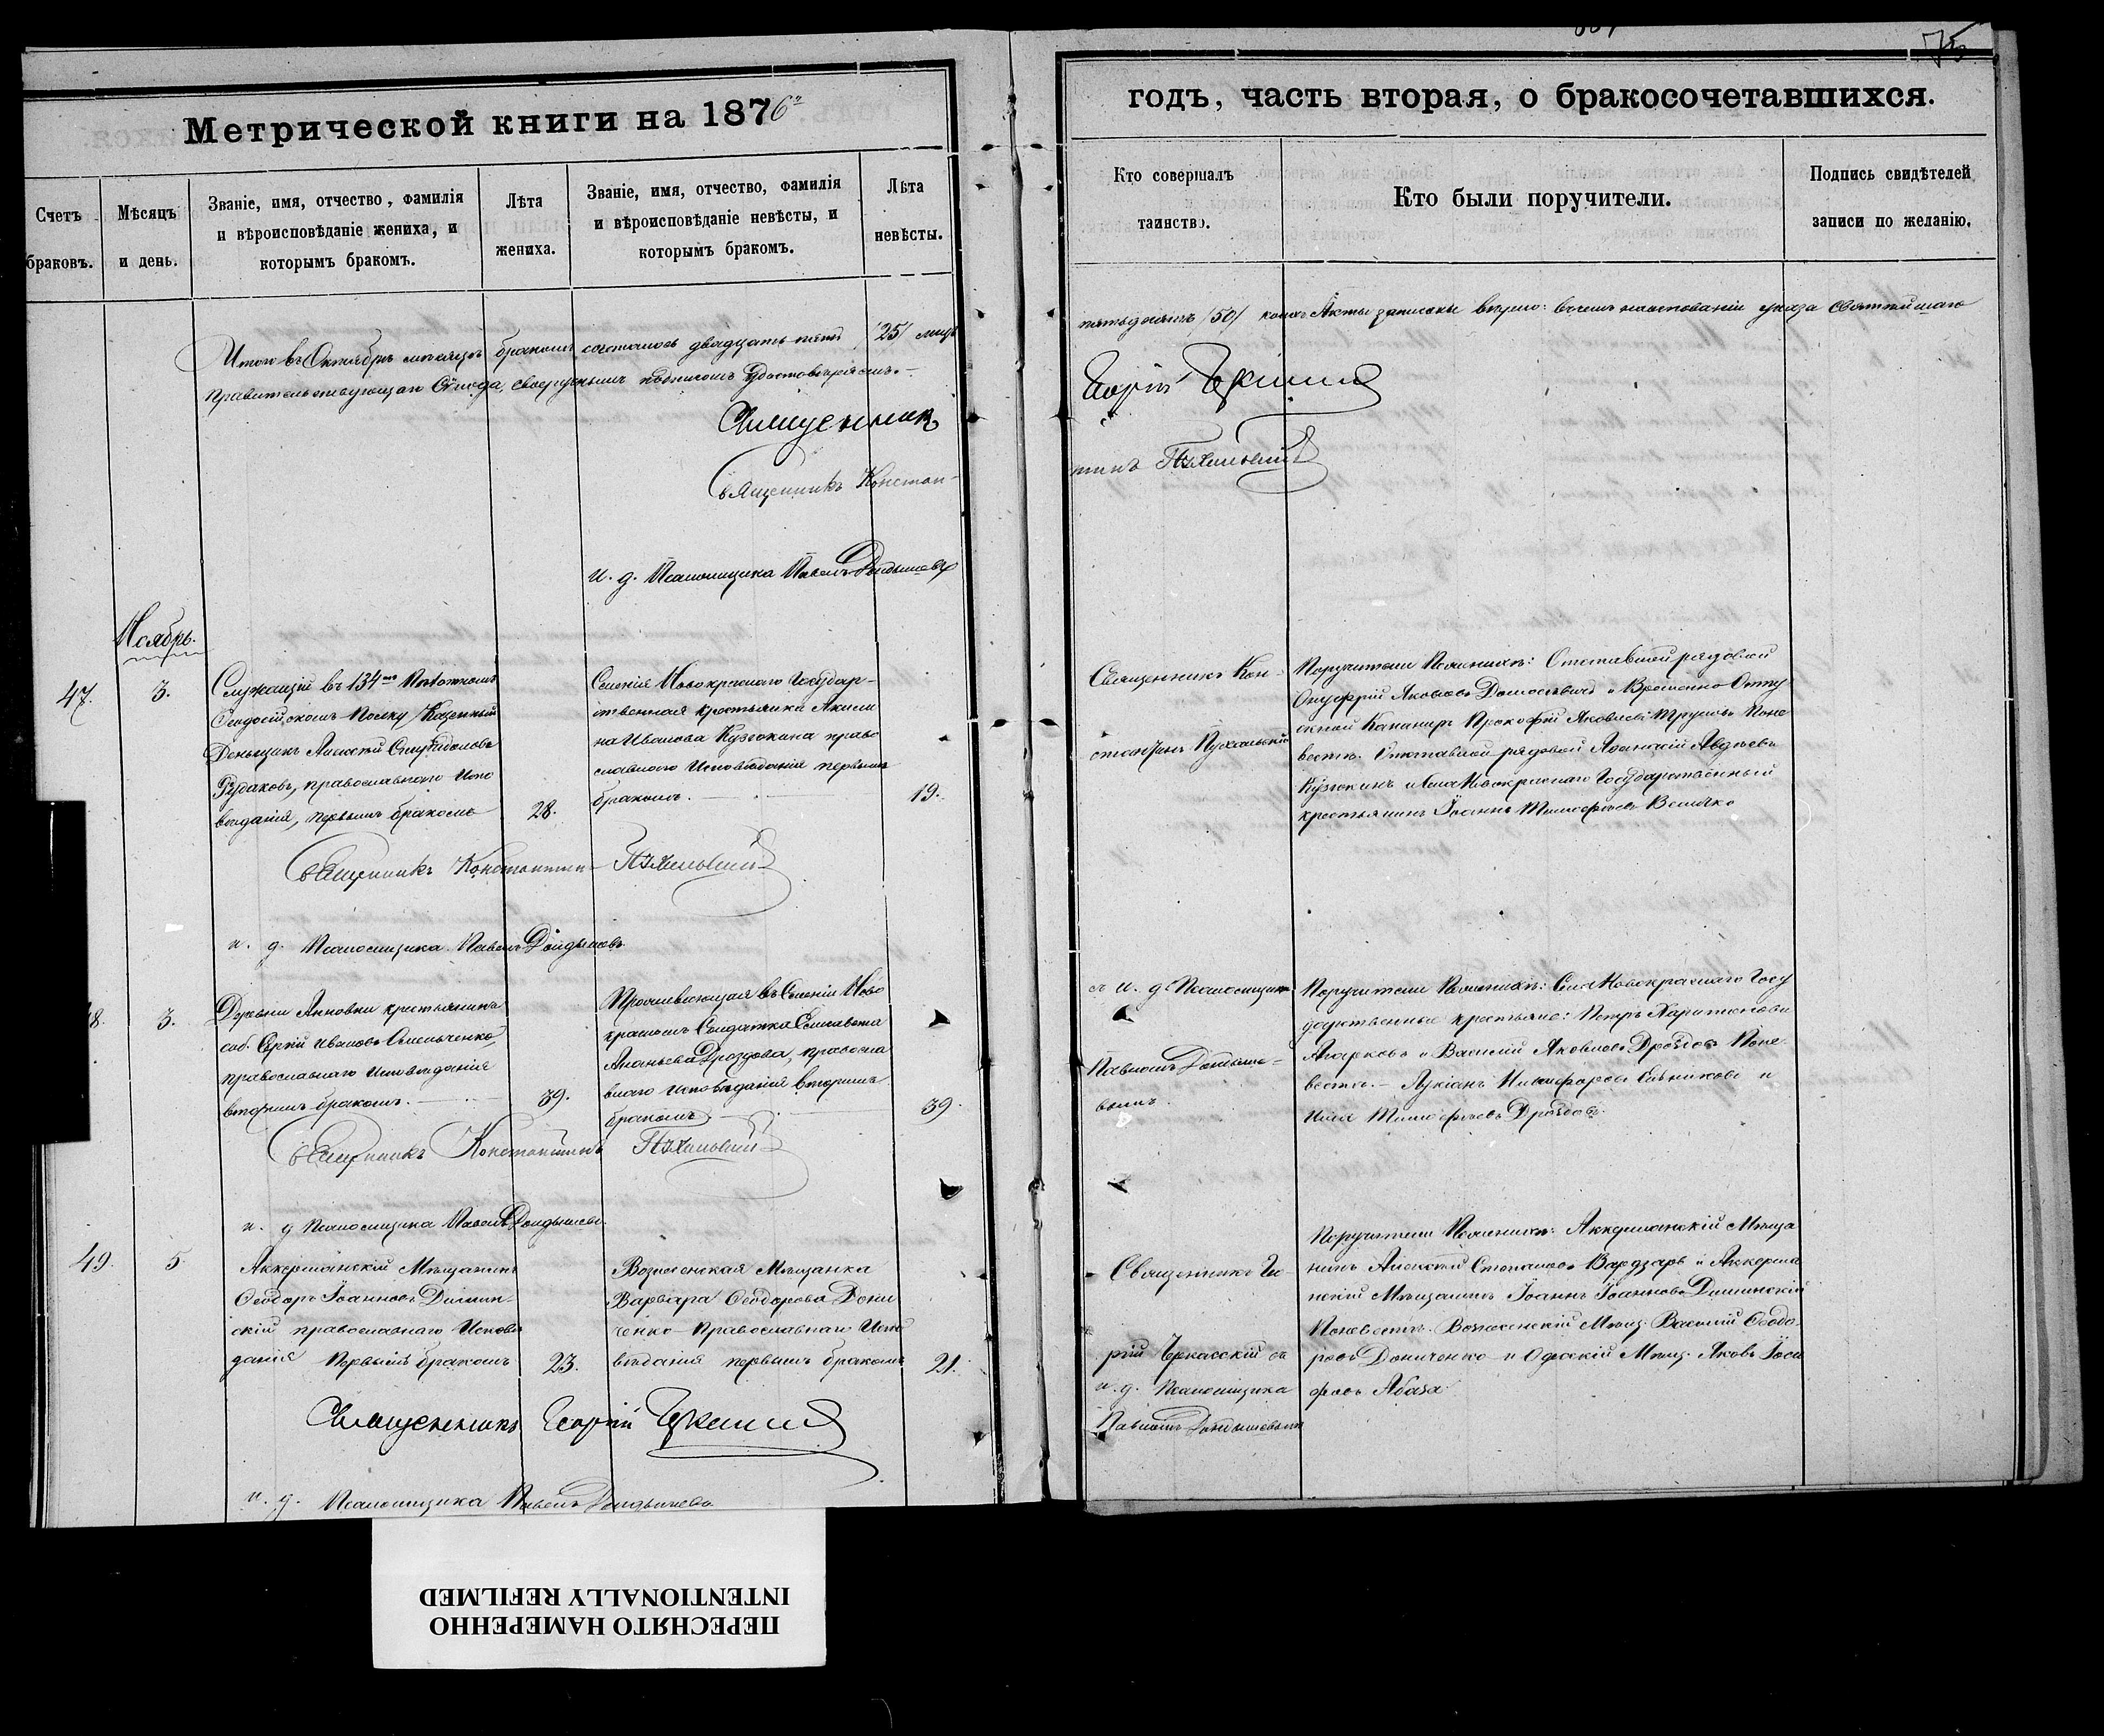 75
Метрической книги на 1876г
годъ, часть вторая, о бракосочетавшихся.
Счетъ браковъ.
Мѣсяцъ и день.
Званіе, имя, отчество, фамилія
и вѣроисповѣданіе жениха, и
которымъ бракомъ.
Лѣта
жениха.
Званіе, имя, отчество, фамилія
и вѣроисповѣданіе невѣсты, и
которымъ бракомъ.
Лѣта
невѣсты.
Кто совершалъ
таинство.
Кто были поручители.
Подпись свидѣтелей
записи по желанію.
Итого въ Октябрѣ мѣсяцѣ бракомъ сочеталось двадцать пять /25/ лицъ
пятьдесятъ /50/ коихъ Акты записаны вѣрно: въ чемъ на основаніи указа Святѣйшаго
Правительствующаго Сѵнода, своеручнымъ подписомъ Удостовѣряемъ.
Священникъ
Георгій
Священникъ Констан-
тинъ
и. д. Псаломщика Павелъ
Ноябрь.
47.
3.
Служащій въ 134мъ Пѣхотномъ
Ѳеодосійскомъ Полку Казенный
Деньщикъ Алексѣй
Рудаковъ, православнаго Испо
вѣданія, первымъ бракомъ
28.
Селенія Новокраснаго Государ-
ственная крестьянка Акили
на Иванова Кузюкина право
славнаго Исповѣданія первымъ
бракомъ.
19.
Священникъ Кон-
стантинъ
Поручители По женихѣ: Отставной рядовой
Онуфрій Яковлевъ и Временно Отпу
скной Канониръ Прокофій Яковлевъ По не
вѣстѣ. Отставной рядовой Аѳанасій Авдѣевъ
Кузюкинъ и Села Новокраснаго Государственный
крестьянинъ Іоаннъ Тимоѳеевъ Величко
Священникъ Константинъ
и. д. Псаломщика Павелъ
48.
3.
Деревни Анновки крестьянинъ
соб. Сергій Ивановъ Омельченко,
православнаго Исповѣданія
вторымъ бракомъ.
39.
Проживающая въ Селеніи Ново
красномъ Солдатка Елисавета
Ананьева Дроздова, правосла
внаго исповѣданія вторымъ
бракомъ
39.
съ И. д. Псаломщика
Павломъ
вымъ.
Поручители По женихѣ: Села Новокраснаго Госу
дарственные крестьяне: Петръ Харитоновъ
Агарковъ и Василій Яковлевъ Дроздовъ По не
вѣстѣ. – Лукіанъ Никифоровъ и
Илія Тимоѳеевъ Дроздовъ.
Священникъ Константинъ
и. д Псаломщика Павелъ
49.
5
Аккерманскій Мѣщанинъ
Ѳеодоръ Іоанновъ
скій православнаго Исповѣ
данія Первымъ бракомъ
23.
Вознесенская Мѣщанка
Варвара Ѳеодорова Дони
ченко – Православнаго Испо
вѣданія первымъ бракомъ
21.
Священникъ Ге-
ргій Черкасскій съ
и. д. Псаломщика
Павломъ
Поручители По женихѣ: Аккерманскій Мѣща
нинъ Алексѣй Степановъ Вардзарь и Аккерма
нскій Мѣщанинъ Іоаннъ Іоанновъ
По невѣстѣ. Вознесенскій Мѣщ. Василій Ѳеодо
ровъ Дониченко и Одесскій Мѣщ. Яковъ Іоси
фовъ Абаза
Священникъ Георгій
и. д. Псаломщика Павелъ
ПЕРЕСНЯТО НАМЕРЕННО
INTENTIONALLY REFILMED